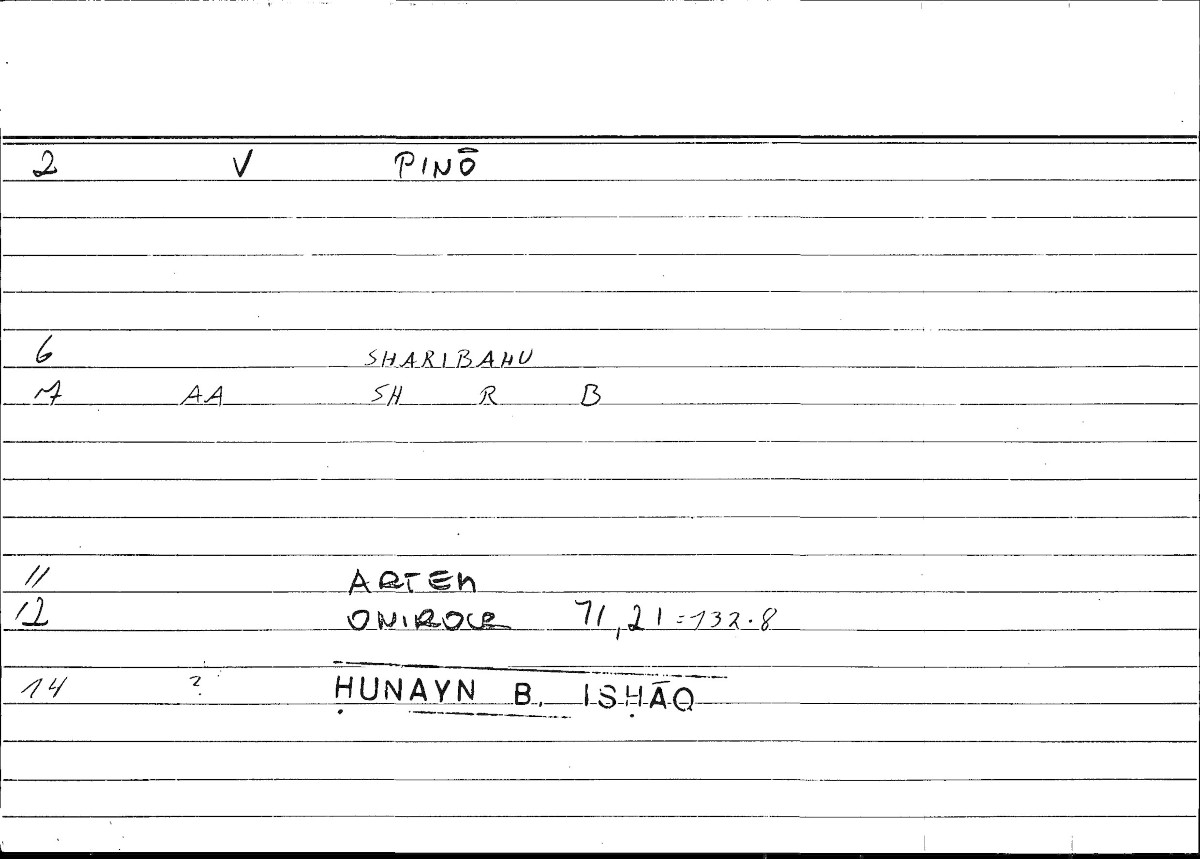 2 V PINŌ
6 SHARIBAHU
7 AA SH R B
11 ARTEM
12 ONIROCR 71,21=132.8
14 ? ḤUNAYN B. ISḤĀQ